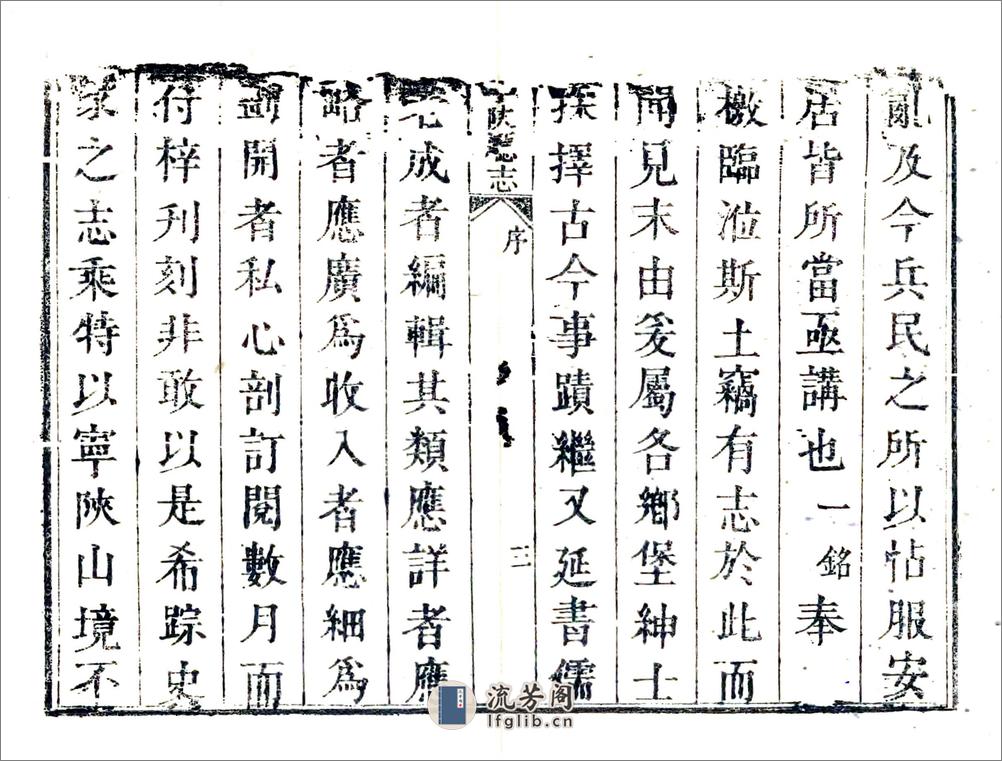 亂及今兵民之所以帖服安
居皆所當亟講也一銘奉
檄臨涖斯土竊有志於此而
聞見末由爰屬各鄉堡紳士
採擇古今事蹟繼又延書儒
陝㕔志 序 三
老成者編輯其類應詳者應
略者應廣爲收入者應細爲
開者私心剖訂閱數月而
付梓刊刻非敢以是希踪史
家之志乘特以寧陝山境不
流芳阁
lfglib.cn